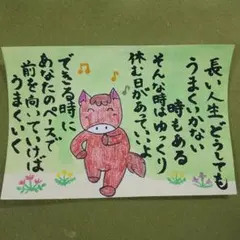 長い人生どうしても
うまくいかない
時もある
そんな時はゆっくり
休む日があっていいよ
できる時に
あなたのペースで
前を向いていけば
うまくいく